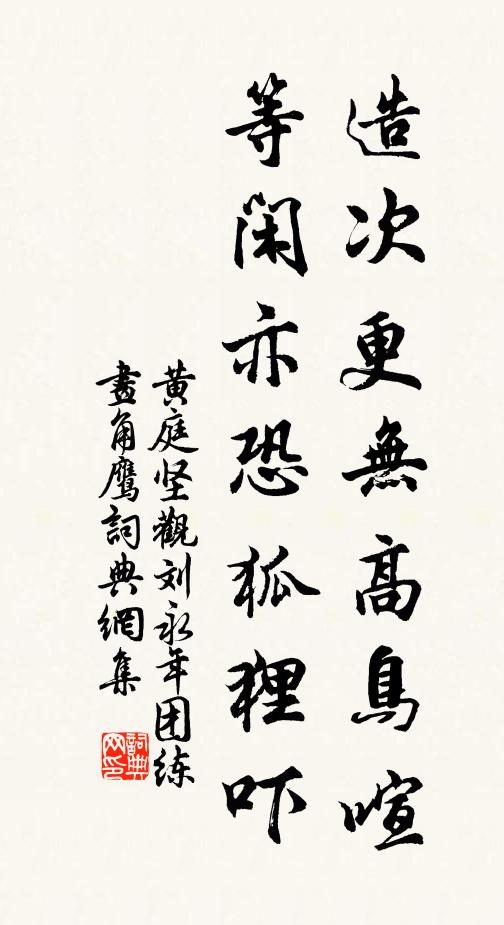 造次更無高鳥喧
等閑亦恐狐狸吓
黄庭坚觀刘永年团练
畫角鷹詞典網集
詞典
网印